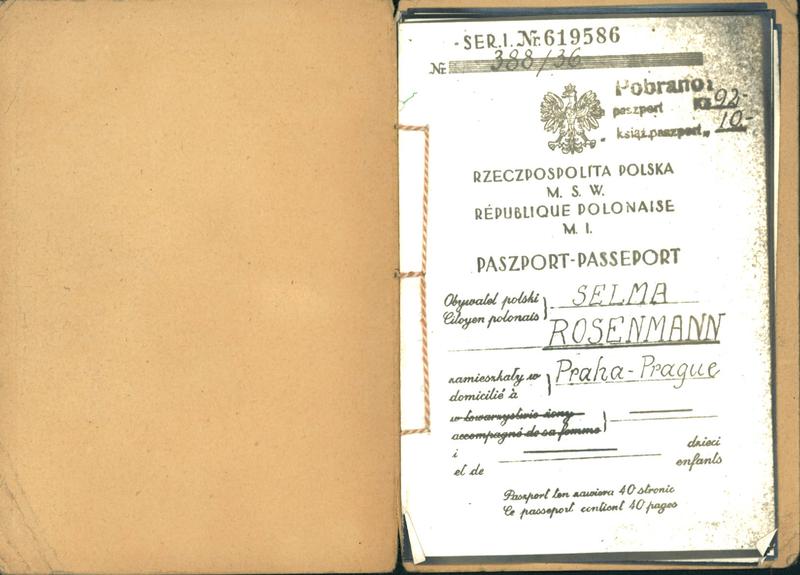 SER. I. Nr. 619586
Nr. 388/36
Pobrano:
paszport Kč 92.-
„książ. paszport„ 10.-
RZECZPOSPOLITA POLSKA
M. S. W.
RÉPUBLIQUE POLONAISE
M. I.
PASZPORT-PASSEPORT
Obywatel polski } SELMA
Citoyen polonais
ROSENMANN
zamieszkały w } Praha-Prague
domicilié à
w towarzystwie żony
accompagné de sa femme }
i dzieci
et de enfants
Paszport ten zawiera 40 stronic
Ce passeport contient 40 pages